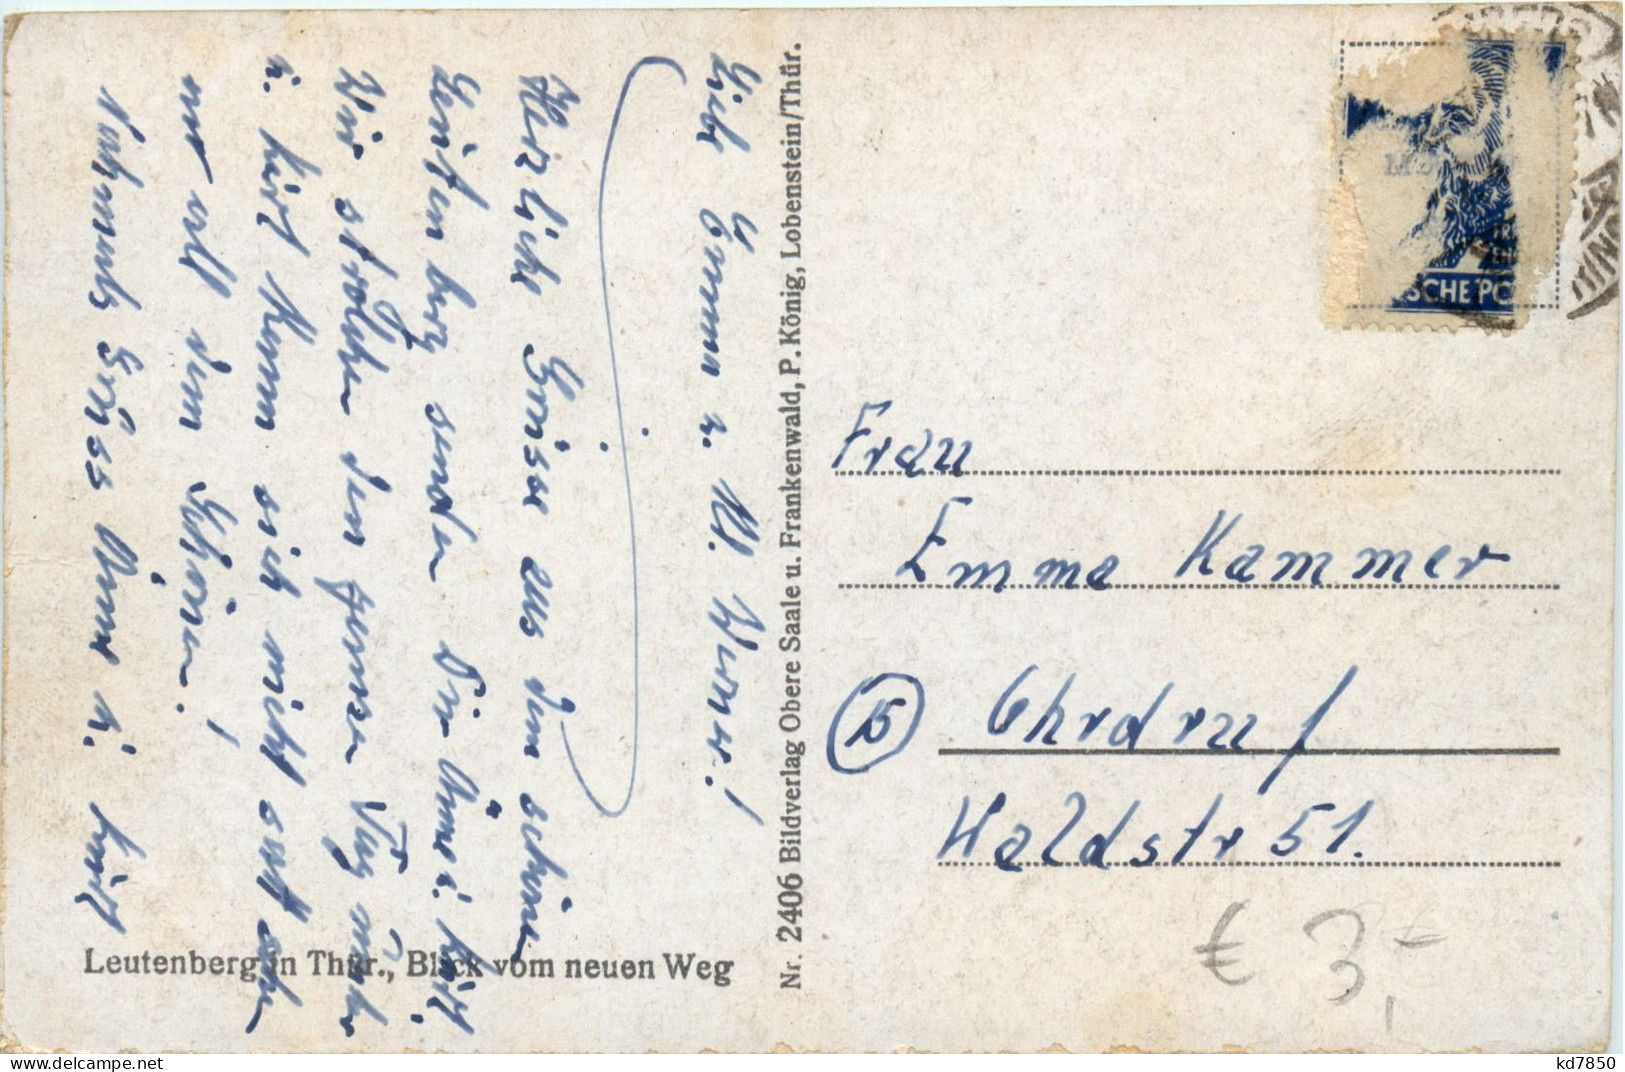 Liebe Emma u. Kl. Werner!
Herzliche Grüsse aus dem schönen
Leutenberg senden Dir Anne u. Kurt.
Wir strolchen den ganzen Tag umher
u. Kurt kann sich nicht satt sehn
nur all dem Schönen!
Nochmals Gruss Anne u. Kurt
Leutenberg in Thür., Blick vom neuen Weg
Nr. 2406 Bildverlag Obere Saale u. Frankenwald, P. König, Lobenstein/Thür.
SCHE PO
Frau
Emma Kammer
15 Ohrdruf
Waldstr 51.
€ 3,-
www.delcampe.net
kd7850